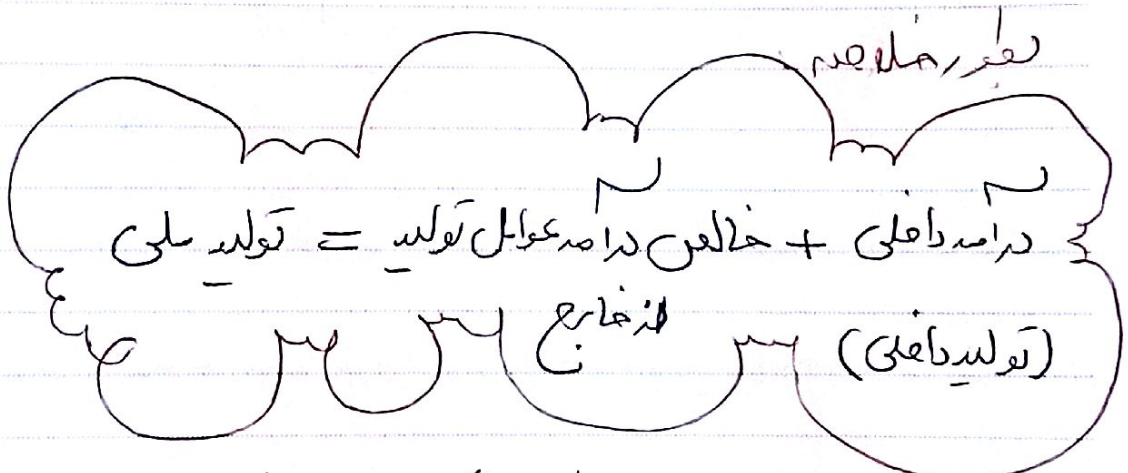 بطور خلاصه
درآمد داخلی + خالص درآمد عوامل تولید = تولید ملی
از خارج
(تولید داخلی)